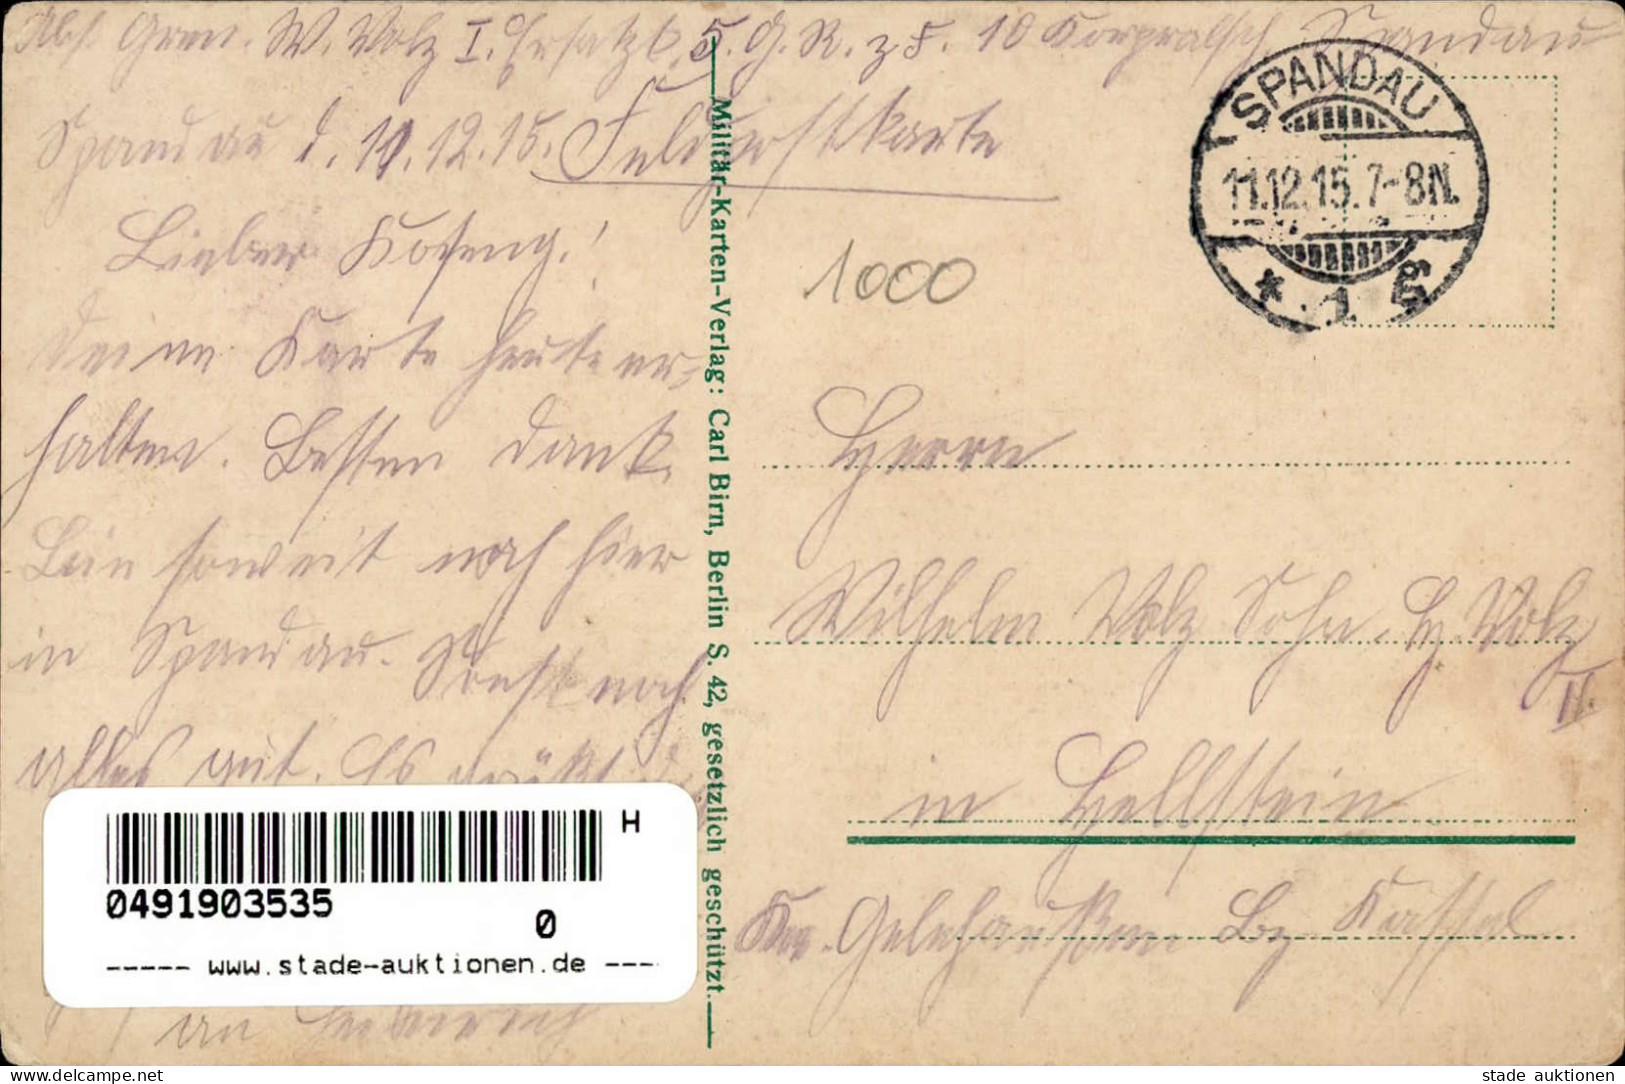 Abs. Gren. W. Volz I. Ersatzb. 5. G. R. z F. 10 Korpralsch. Spandau
Spandau d. 10.12.15. Feldpostkarte
Lieber
Deine Karte heute er-
halten. Besten Dank.
Bin soweit noch hier
in Spandau. Sonst noch
alles gut. Es
an Heinrich
Militär-Karten-Verlag: Carl Birn, Berlin S. 42, gesetzlich geschützt.
SPANDAU
11.12.15. 7-8N.
* 1 g
1000
Herrn
Wilhelm Volz Sohn. Hr. Volz
II.
in Hellstein
Kr. Gelnhausen Bz Kassel
H
0491903535
0
----- www.stade-auktionen.de ---
www.delcampe.net
stade auktionen